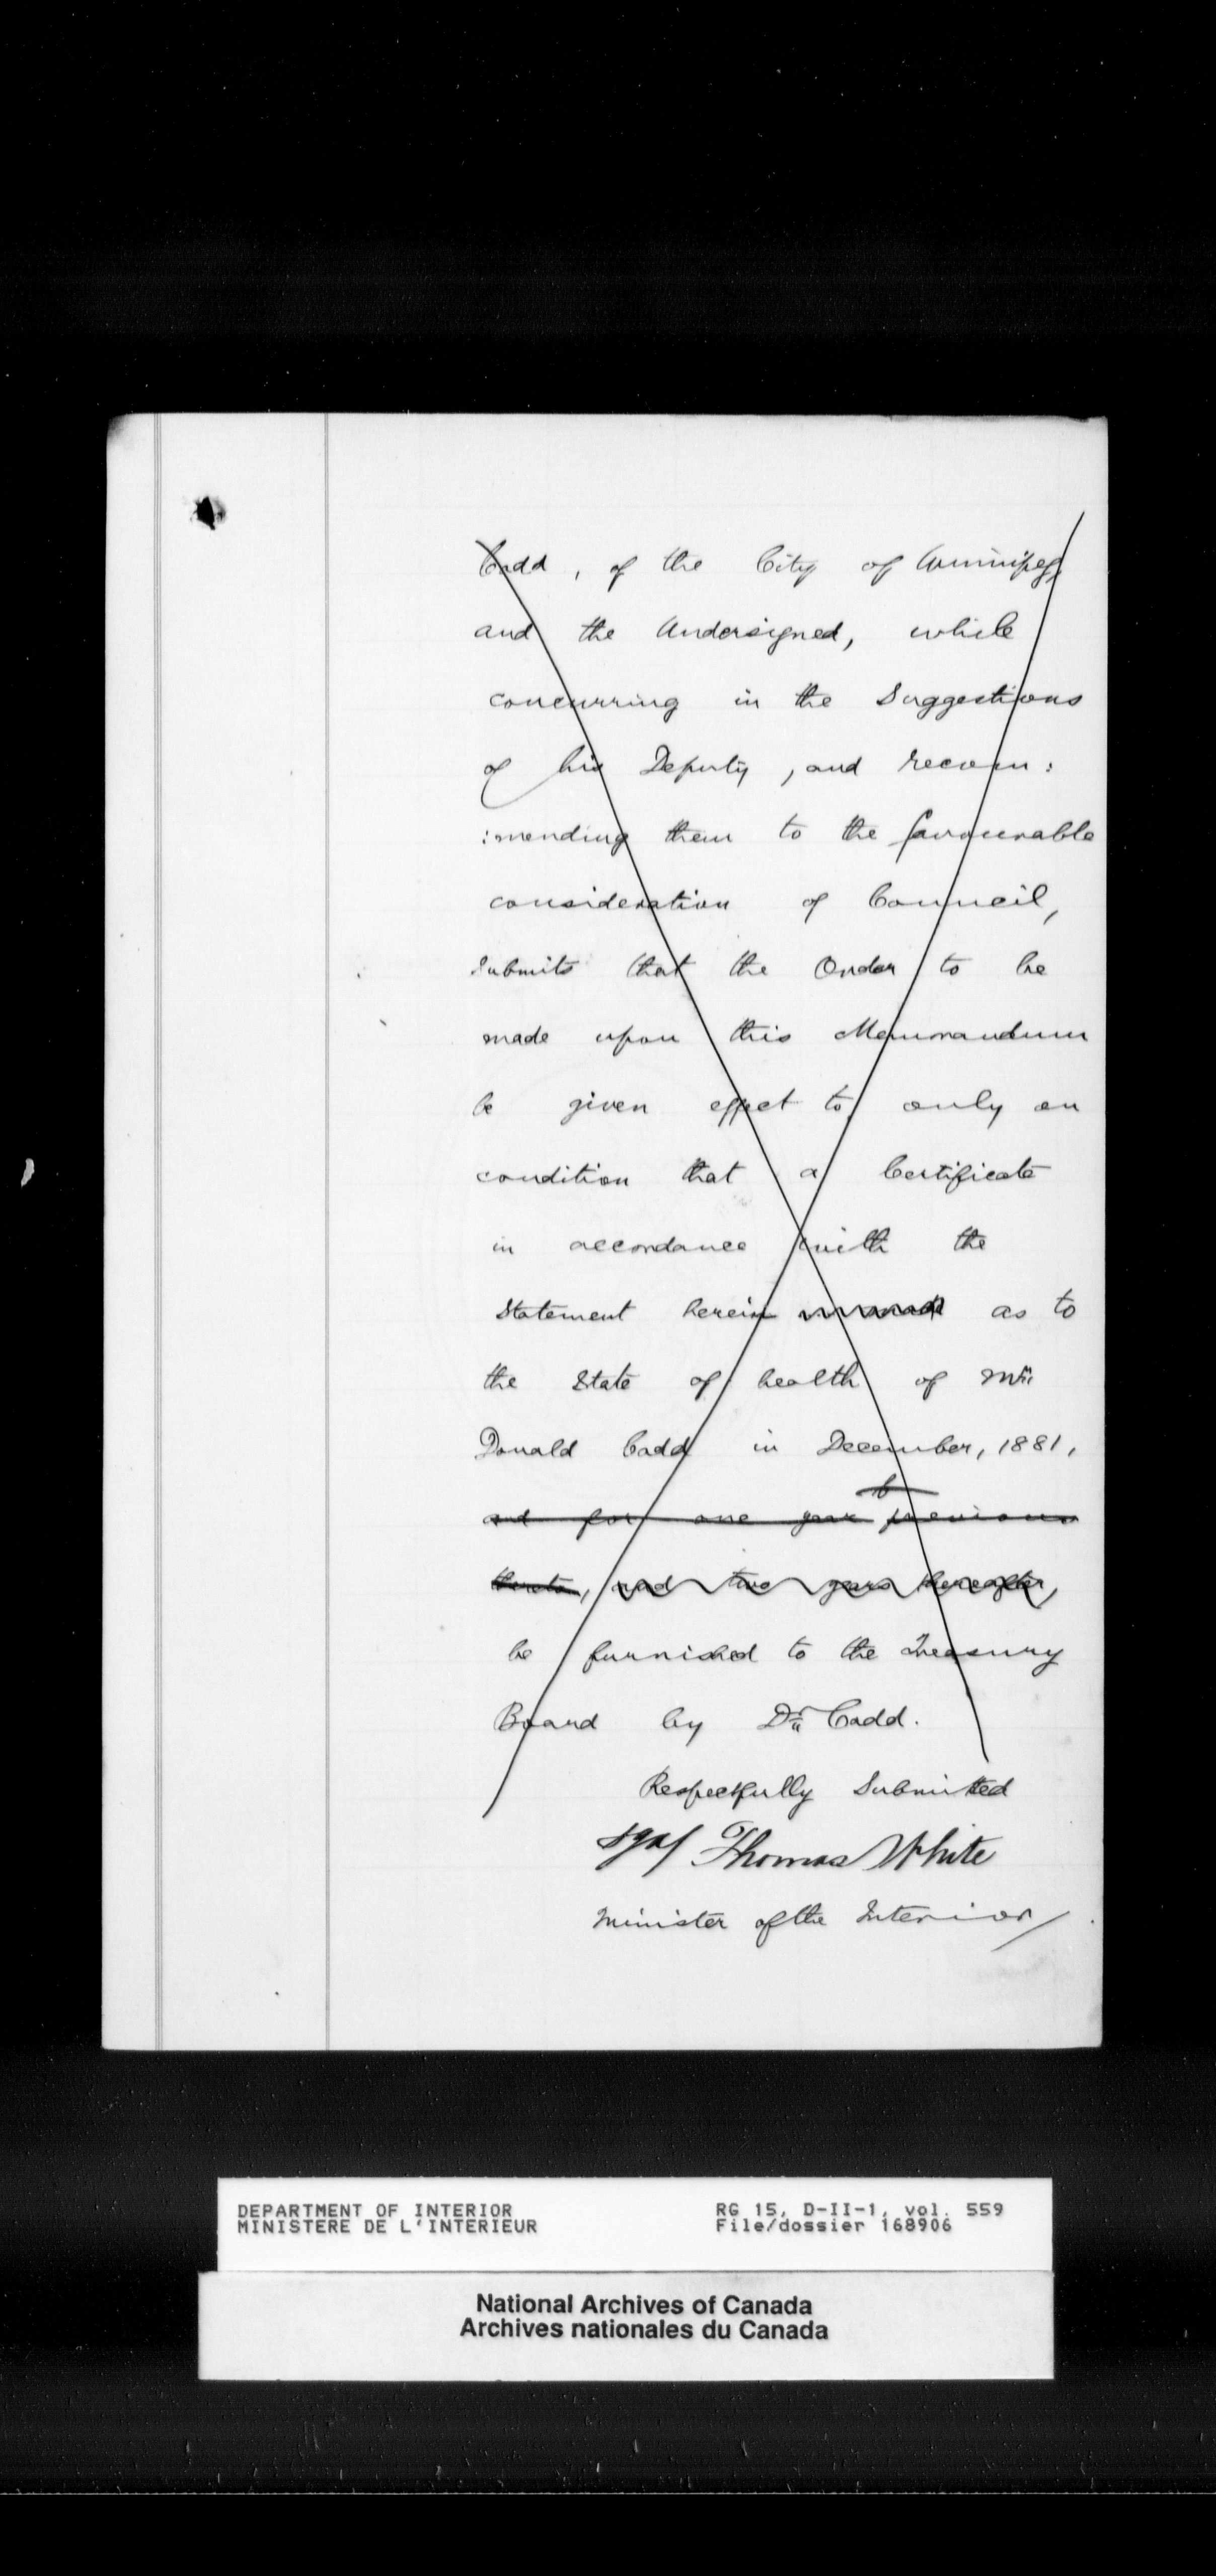 Codd, of the City of Winnipeg,
and the Undersigned, while
concurring in the Suggestions
of his Deputy, and recom:
:mending them to the favourable
consideration of Council,
Submits that the Order to be
made upon this Memorandum
be given effect to, only on
condition that a Certificate
in accordance with the
Statement herein as to
the State of health of Mr.
Donald Codd in December, 1881,
and for one year previous
thereto, and two years thereafter,
be furnished to the Treasury
Board by Dr. Codd.
Respectfully Submitted
sgd/ Thomas White
Minister of the Interior/
DEPARTMENT OF INTERIOR
MINISTERE DE L'INTERIEUR
RG 15, D-II-1, vol. 559
File/dossier 168906
National Archives of Canada
Archives nationales du Canada